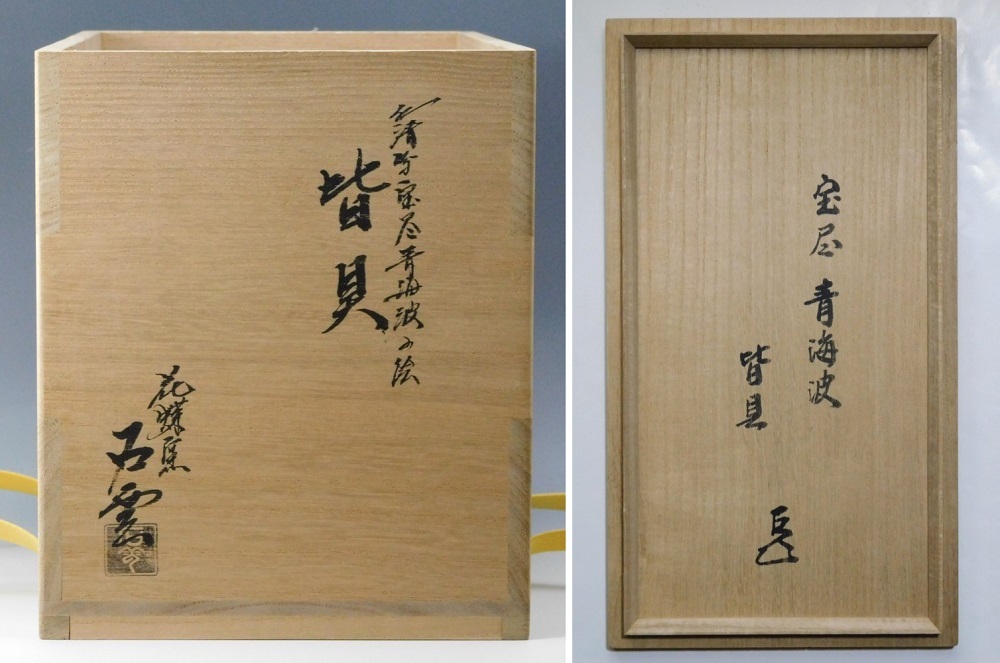 仁清写宝尽青海波の絵
皆具
花蝶窯
石雲
宝尽青海波
皆具